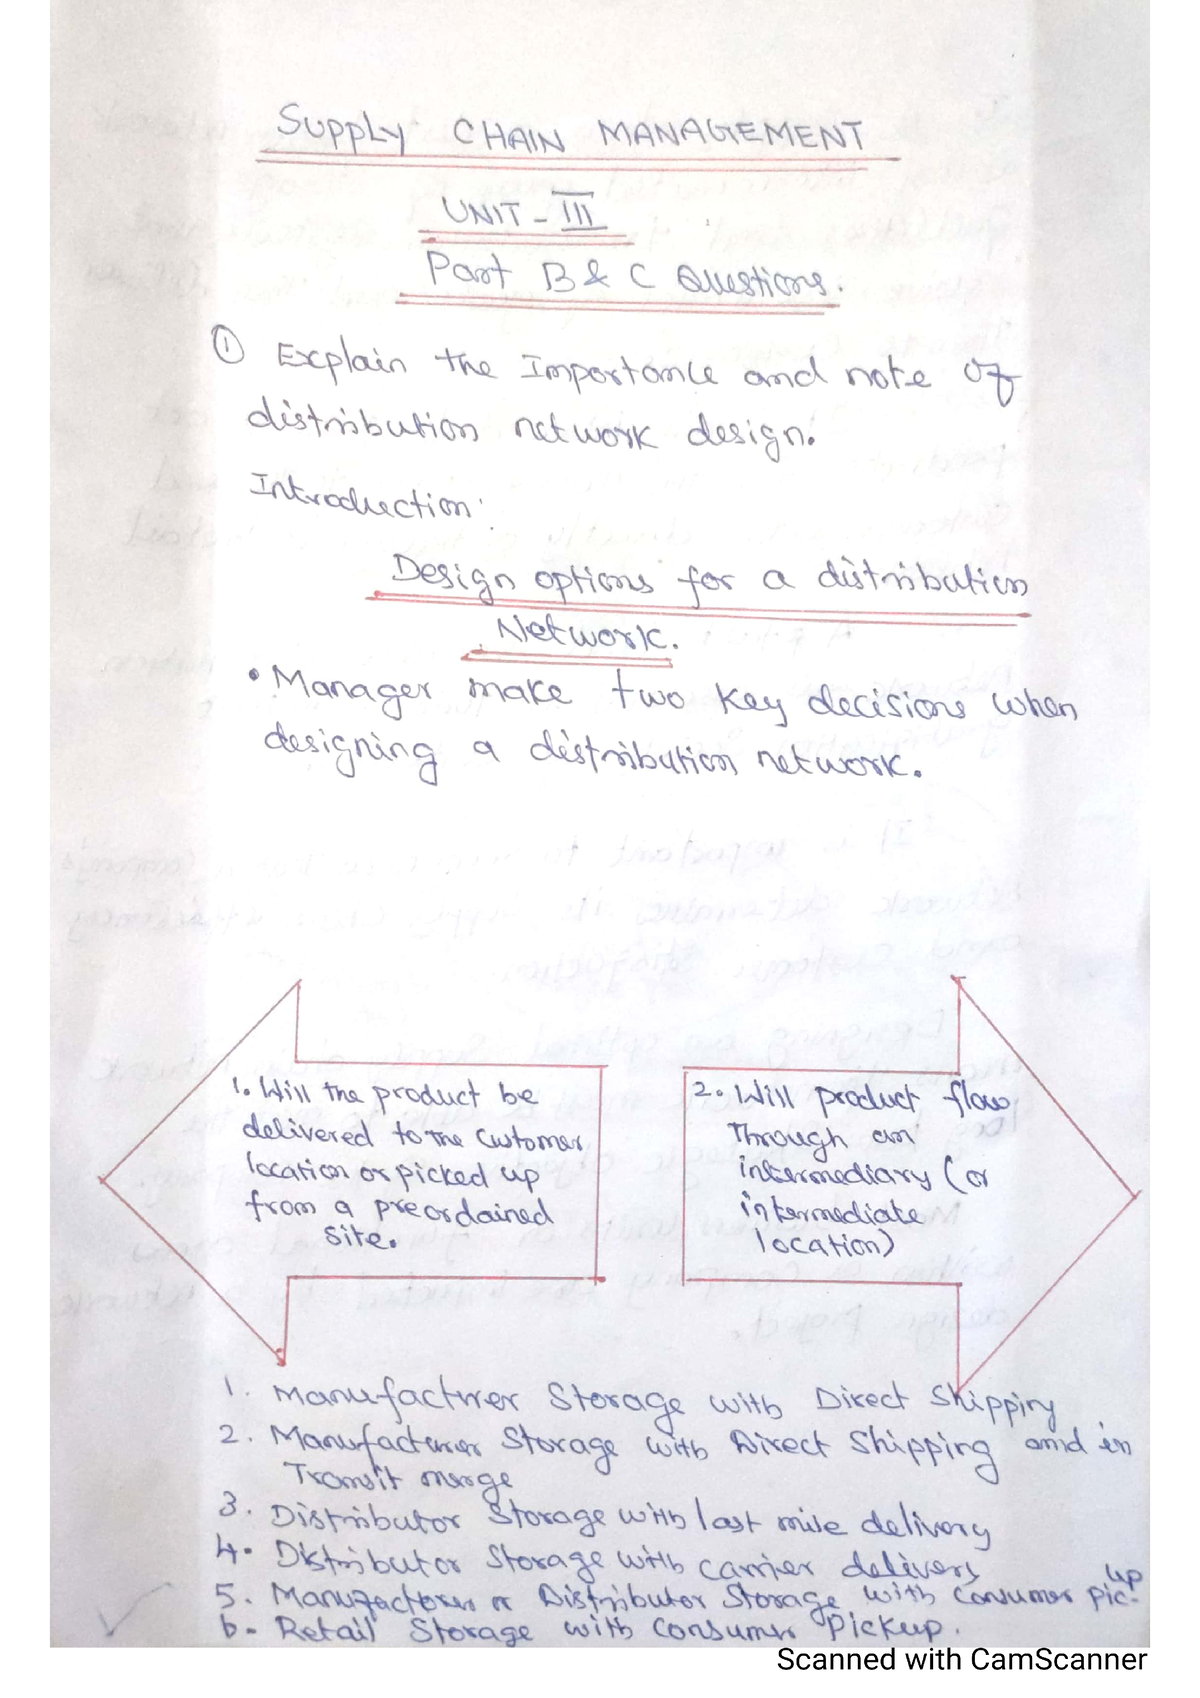 SUPPLY CHAIN MANAGEMENT
UNIT - III
Part B & C Questions.
① Explain the Importance and note of
distribution network design.
Introduction:
Design options for a distribution
Network.
• Manager make two key decisions when
designing a distribution network.
1. Will the product be
delivered to the customer
location or picked up
from a preordained
site.
2. Will product flow
Through an
intermediary (or
intermediate
location)
1. Manufacturer Storage with Direct Shipping
2. Manufacturer Storage with Direct Shipping and in
Transit merge
3. Distributor Storage with last mile delivery
4. Distributor Storage with carrier delivery
5. Manufacturer or Distributor Storage with Consumer pic-
up
6. Retail Storage with Consumer Pickup.
Scanned with CamScanner